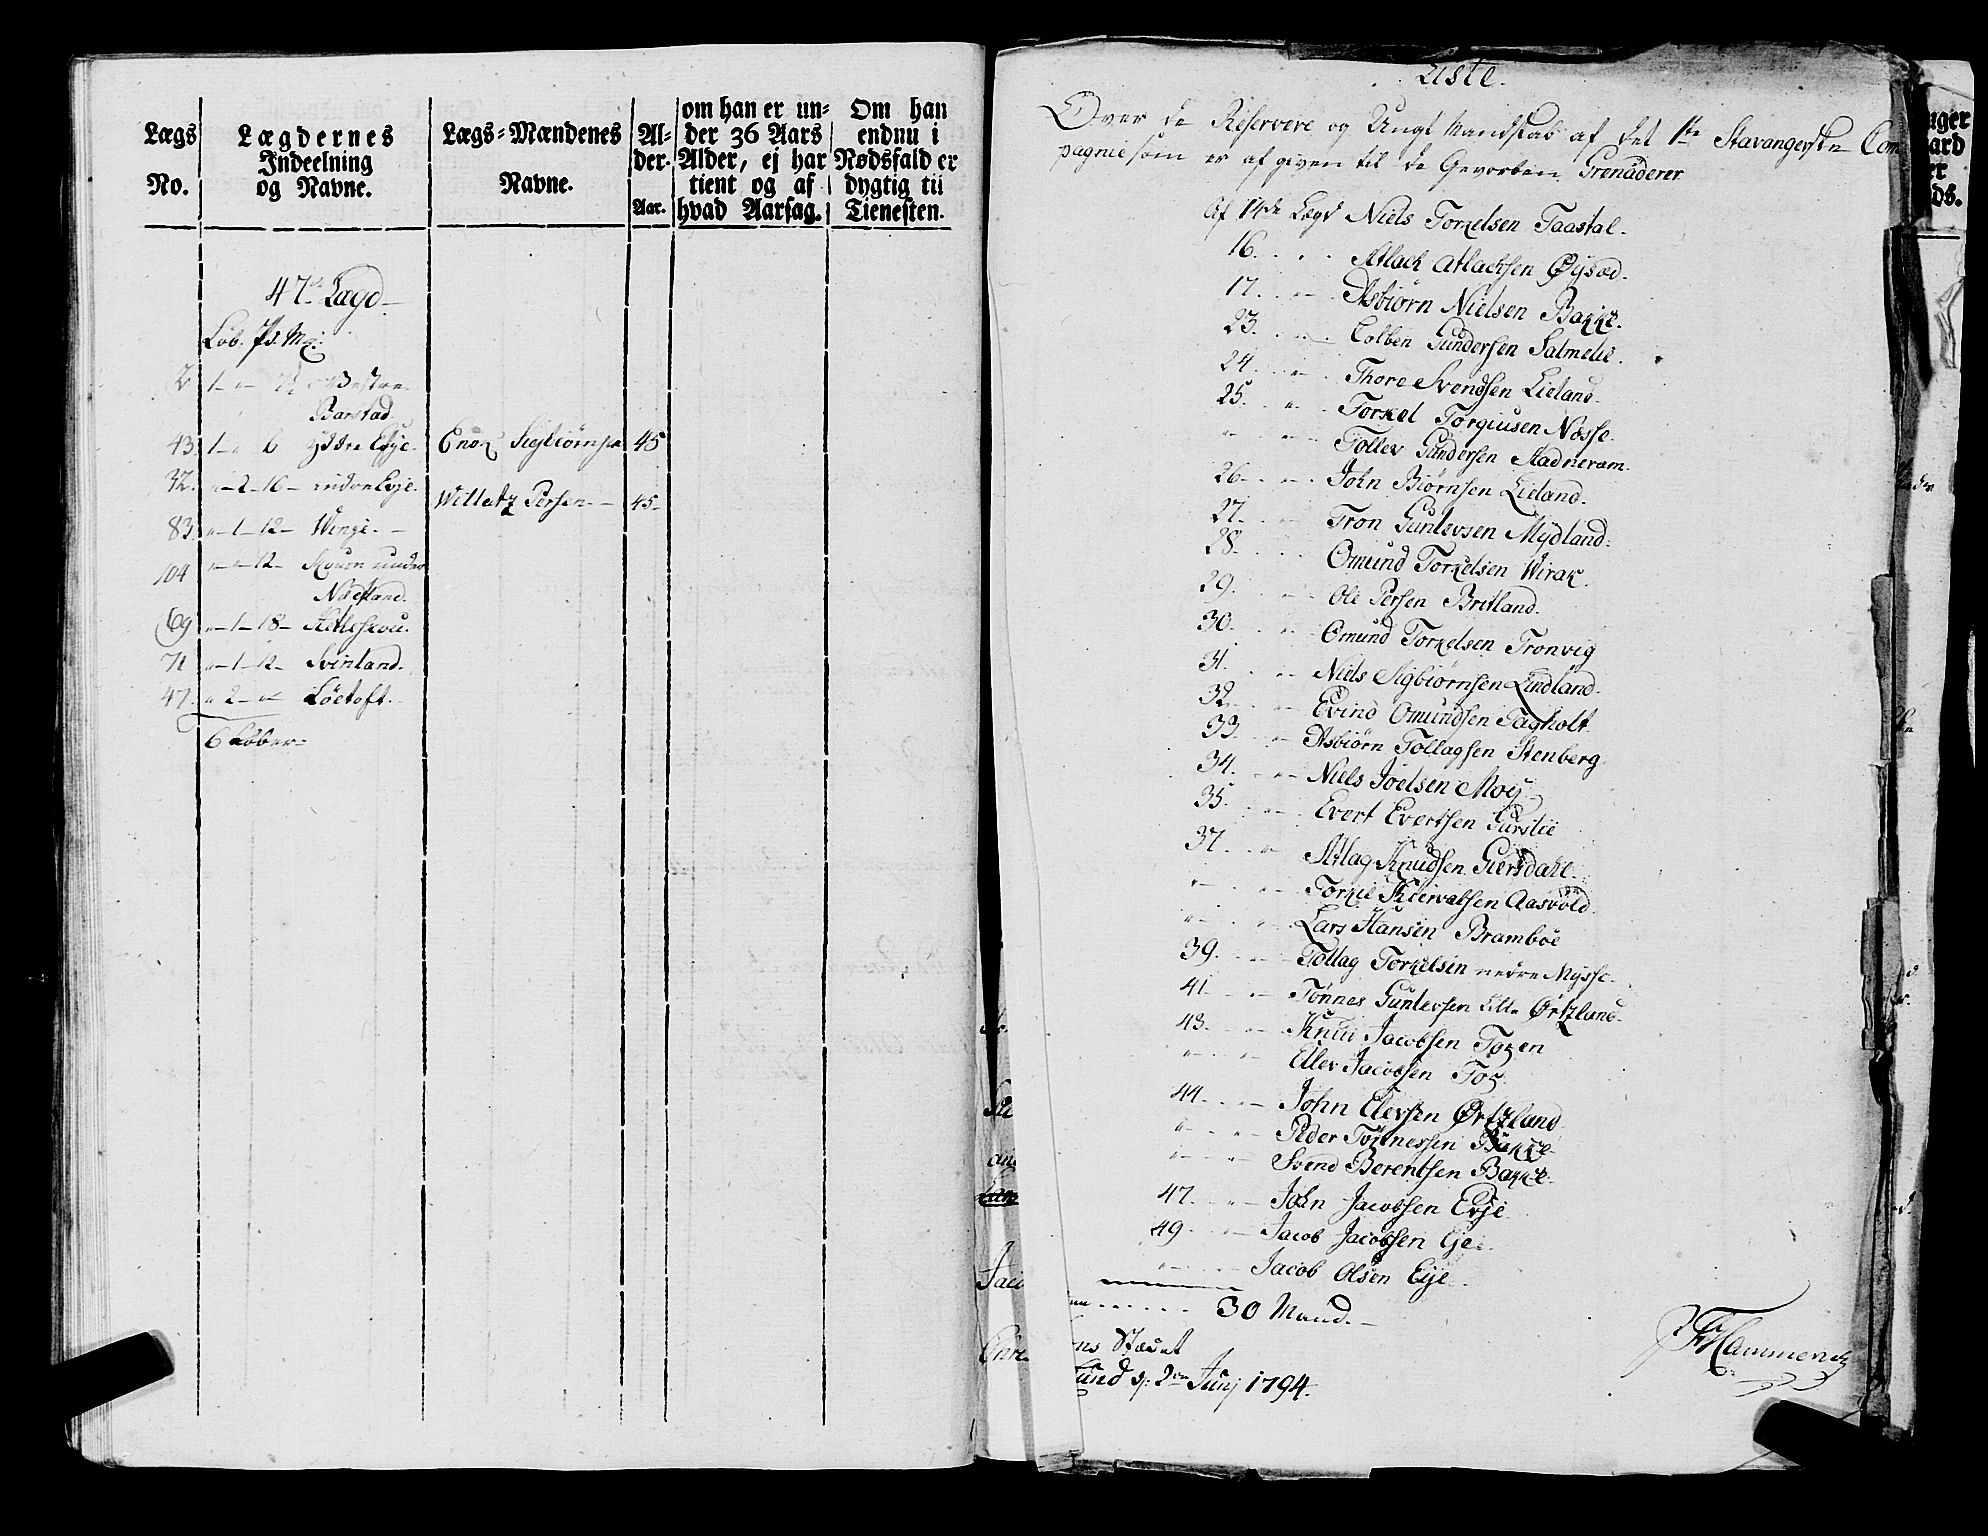 Lægs No.
Lægdernes Indeelning og Navne.
Lægs-Mændenes Navne.
Alder. Aar.
om han er under 36 Aars Alder, ej har tient og af hvad Aarsag.
Om han endnu i Nødsfald er dygtig til Tienesten.
47de Lægd
Løb. Pd. Mr:
2 1 - " - 7½ Westre
Barstad.
43. 1 - " 6 Yttre Evje. Enok Sigbiørnsen 45
32. " - 2 - 16 - indre Evje. Willatz Persen - 45 -
83. " - 1 - 12 - Winge. -
104 " - " - 12 - Skuen under
Næstland.
69 " - 1 - 18 -
71 " - 1 - 12 - Svinland.
47. " 2 - " Löetoft.
6 Løber
Liste.
Over de Reserver og Ungt Mandskab af det 1ste Stavangerske Com
pagnie som er af given til de Gevorben Grenaderer
Af 14de Lægd Niels Torkelsen Taastal.
16. Atlach Atlachsen Øysæd.
17. Asbiørn Nielsen Bakke.
23. Colben Gundersen Salmelie.
24. Thore Svendsen Lieland.
25. Torkel Torgiusen Nøsse.
" Tollev Gundersen Stadneram.
26. John Biørnsen Lieland.
27. Tron Guntevsen Mydland.
28. Omund Torkelsen Wirak.
29. Ole Persen Britland.
30. Omund Torkelsen Tronvig
31. Niels Sigbiørnsen Lindland.
32. Evind Omundsen Tagholt.
33. Asbiørn Tollagsen Stenberg.
34. Niels Joelsen Moy
35. Evert Evertsen Gurslie
37. Atlag Knudsen Giersdahl.
" Torkel Kiervalsen Aasvold.
" Lars Hansen Bramböe
39. Tollag Torkelsen nedre Mysse.
41. Tønnes Guntevsen Lille Ørtzland.
43. Knud Jacobsen Token
" Ellev Jacobsen Tok
44. John Elevsen Ørtzland
" Peder Tönnessen Bakke
" Svend Berentsen Bakke.
47. John Jacobsen Evje
49. Jacob Jacobsen Eje.
" Jacob Olsen Eije
30 Mand.
Sund d: 2den Junj 1794.
Hammer